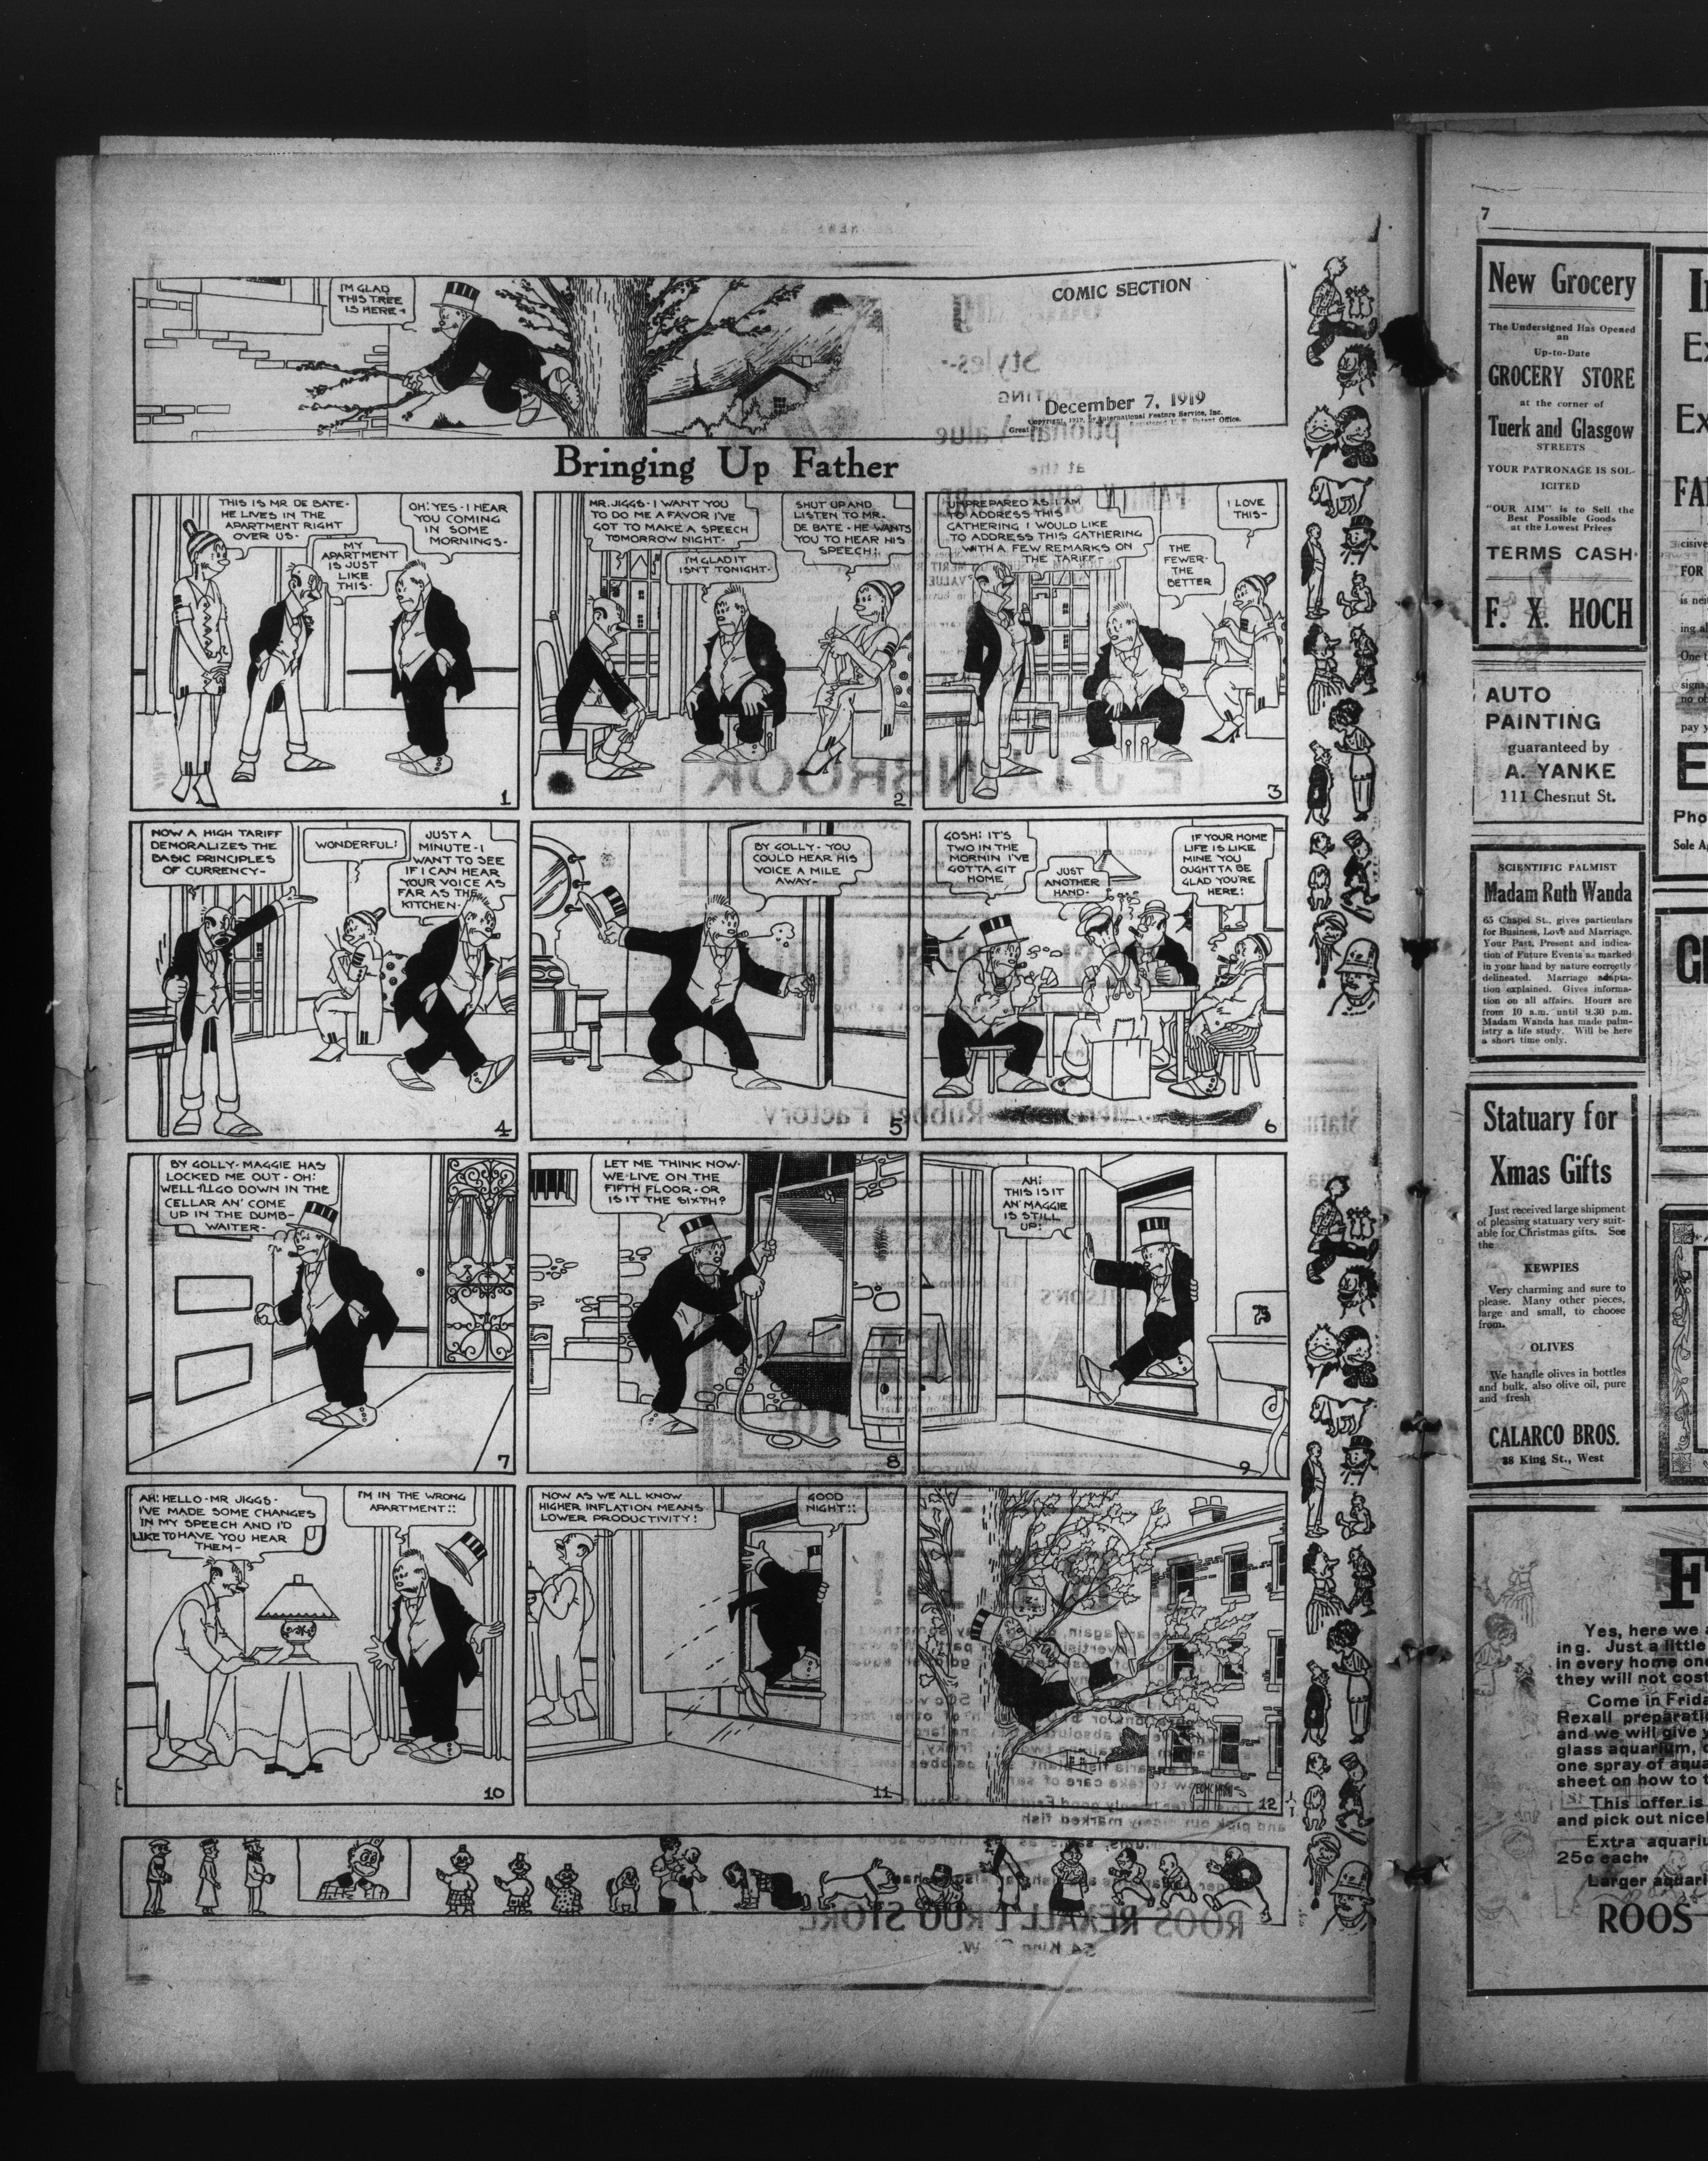 I'M GLAD
THIS TREE
IS HERE-
COMIC SECTION
December 7, 1919
Copyright, 1919, by International Feature Service, Inc.
Great Registered U. S. Patent Office.
Bringing Up Father
THIS IS MR. DE BATE-
HE LIVES IN THE
APARTMENT RIGHT
OVER US-
MY
APARTMENT
IS JUST
LIKE
THIS-
OH! YES- I HEAR
YOU COMING
IN SOME
MORNINGS-
1
MR. JIGGS- I WANT YOU
TO DO ME A FAVOR I'VE
GOT TO MAKE A SPEECH
TOMORROW NIGHT-
I'M GLAD IT
ISN'T TONIGHT-
SHUT UP AND
LISTEN TO MR.
DE BATE- HE WANTS
YOU TO HEAR HIS
SPEECH!
2
UNPREPARED AS I AM
TO ADDRESS THIS
GATHERING I WOULD LIKE
TO ADDRESS THIS GATHERING
WITH A FEW REMARKS ON
THE TARIFF-
THE
FEWER-
THE
BETTER
I LOVE
THIS-
3
NOW A HIGH TARIFF
DEMORALIZES THE
BASIC PRINCIPLES
OF CURRENCY-
WONDERFUL!
JUST A
MINUTE- I
WANT TO SEE
IF I CAN HEAR
YOUR VOICE AS
FAR AS THE
KITCHEN-
4
BY GOLLY- YOU
COULD HEAR HIS
VOICE A MILE
AWAY-
5
GOSH! IT'S
TWO IN THE
MORNIN I'VE
GOTTA GIT
HOME
JUST
ANOTHER
HAND-
IF YOUR HOME
LIFE IS LIKE
MINE YOU
OUGHT TA BE
GLAD YOU'RE
HERE!
6
BY GOLLY- MAGGIE HAS
LOCKED ME OUT- OH!
WELL- I'LL GO DOWN IN THE
CELLAR AN' COME
UP IN THE DUMB-
WAITER-
7
LET ME THINK NOW-
WE LIVE ON THE
FIFTH FLOOR- OR
IS IT THE SIXTH?
8
AH!
THIS IS IT
AN' MAGGIE
IS STILL
UP!
9
AH! HELLO- MR JIGGS-
I'VE MADE SOME CHANGES
IN MY SPEECH AND I'D
LIKE TO HAVE YOU HEAR
THEM-
I'M IN THE WRONG
APARTMENT!!
10
NOW AS WE ALL KNOW
HIGHER INFLATION MEANS
LOWER PRODUCTIVITY!
GOOD
NIGHT!!
11
12
7
New Grocery
The Undersigned Has Opened
an
Up-to-Date
GROCERY STORE
at the corner of
Tuerk and Glasgow
STREETS
YOUR PATRONAGE IS SOL-
ICITED
"OUR AIM" is to Sell the
Best Possible Goods
at the Lowest Prices
TERMS CASH
F. X. HOCH
AUTO
PAINTING
guaranteed by
A. YANKE
111 Chesnut St.
SCIENTIFIC PALMIST
Madam Ruth Wanda
65 Chapel St., gives particulars
for Business, Love and Marriage.
Your Past, Present and indica-
tion of Future Events as marked
in your hand by nature correctly
delineated. Marriage adapta-
tion explained. Gives informa-
tion on all affairs. Hours are
from 10 a.m. until 9.30 p.m.
Madam Wanda has made palm-
istry a life study. Will be here
a short time only.
Statuary for
Xmas Gifts
Just received large shipment
of pleasing statuary very suit-
able for Christmas gifts. See
the
KEWPIES
Very charming and sure to
please. Many other pieces,
large and small, to choose
from.
OLIVES
We handle olives in bottles
and bulk, also olive oil, pure
and fresh
CALARCO BROS.
38 King St., West
Yes, here we
ing. Just a little
in every home one
they will not cost
Come in Frida
Rexall preparati
and we will give
glass aquarium,
one spray of aqua
sheet on how to
This offer is
and pick out nicel
Extra aquariu
25c each.
Larger aquari
ROOS